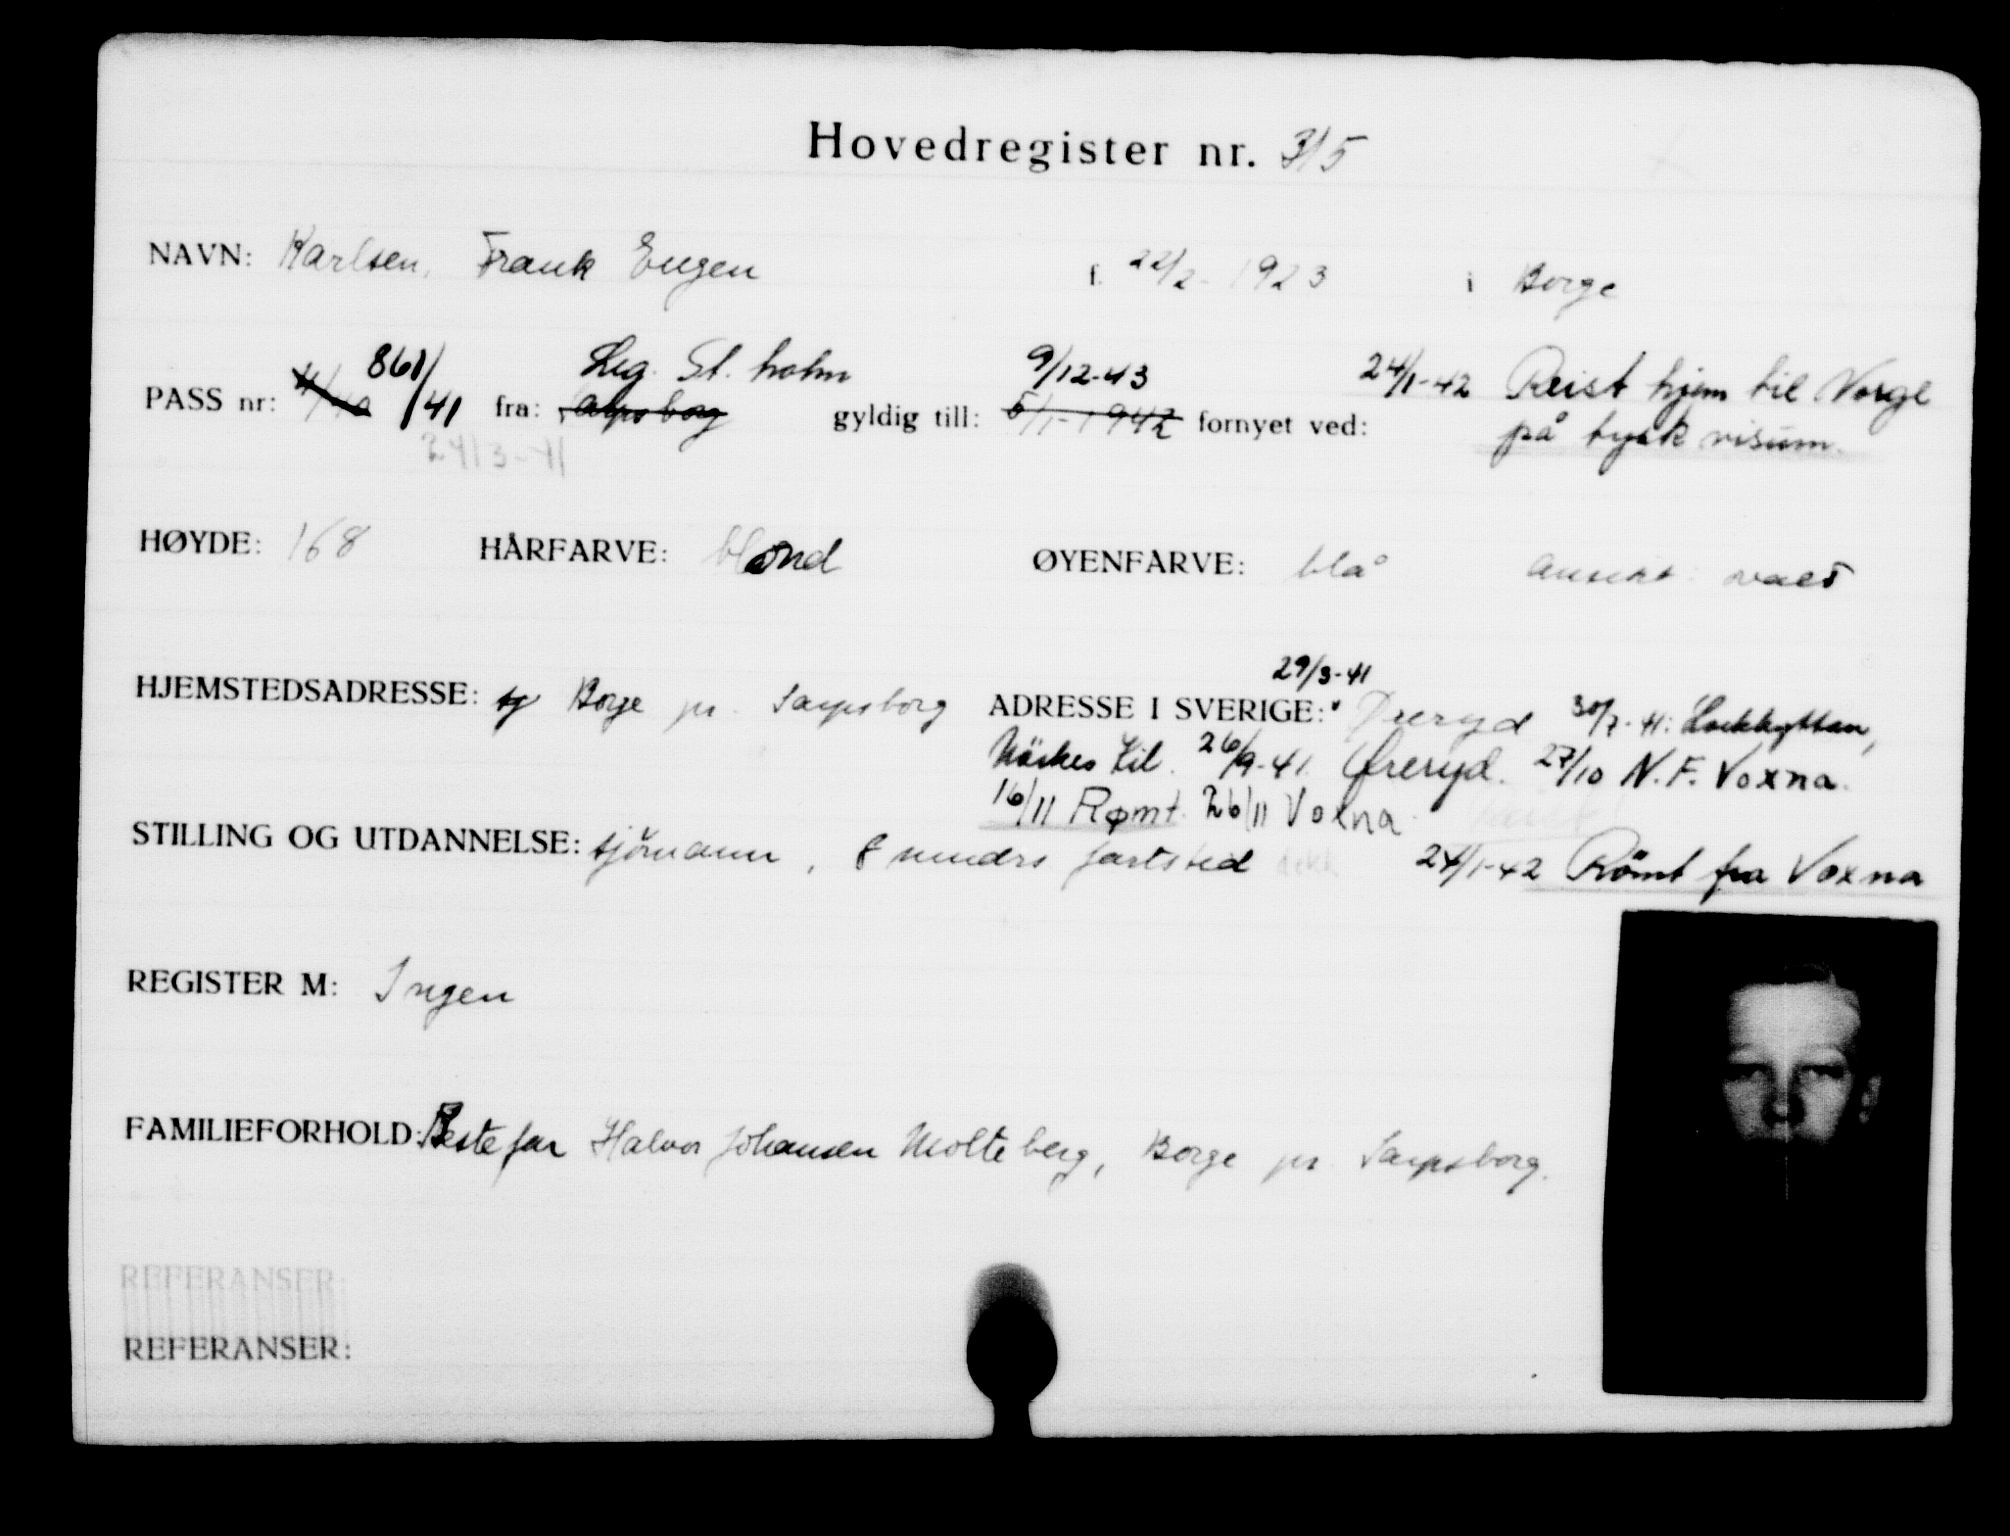 Hovedregister nr. 315
NAVN: Karlsen, Frank Eugen f. 22/2-1923 i Borge
861/ Leg. St. holm 9/12-43 24/1-42 Reist hjem til Norge
PASS nr: /41 fra: Sarpsborg gyldig till: 5/1-1942 fornyet ved: på tysk visum.
24/3-41
HØYDE: 168 HÅRFARVE: blond ØYENFARVE: blå ansikt: ovalt
29/3-41
HJEMSTEDSADRESSE: Borge pr. Sarpsborg ADRESSE I SVERIGE: Øreryd 30/7-41: Lockhyttan,
Kil. 26/9-41. Øreryd. 27/10 N.F. Voxna.
16/11 Rømt. 26/11 Voxna.
STILLING OG UTDANNELSE: sjömann, 8 mndrs fartstid 24/1-42 Römt fra Voxna
REGISTER M: Ingen
FAMILIEFORHOLD: Bestefar Halvor Johansen Molteberg, Borge pr. Sarpsborg.
REFERANSER:
REFERANSER: